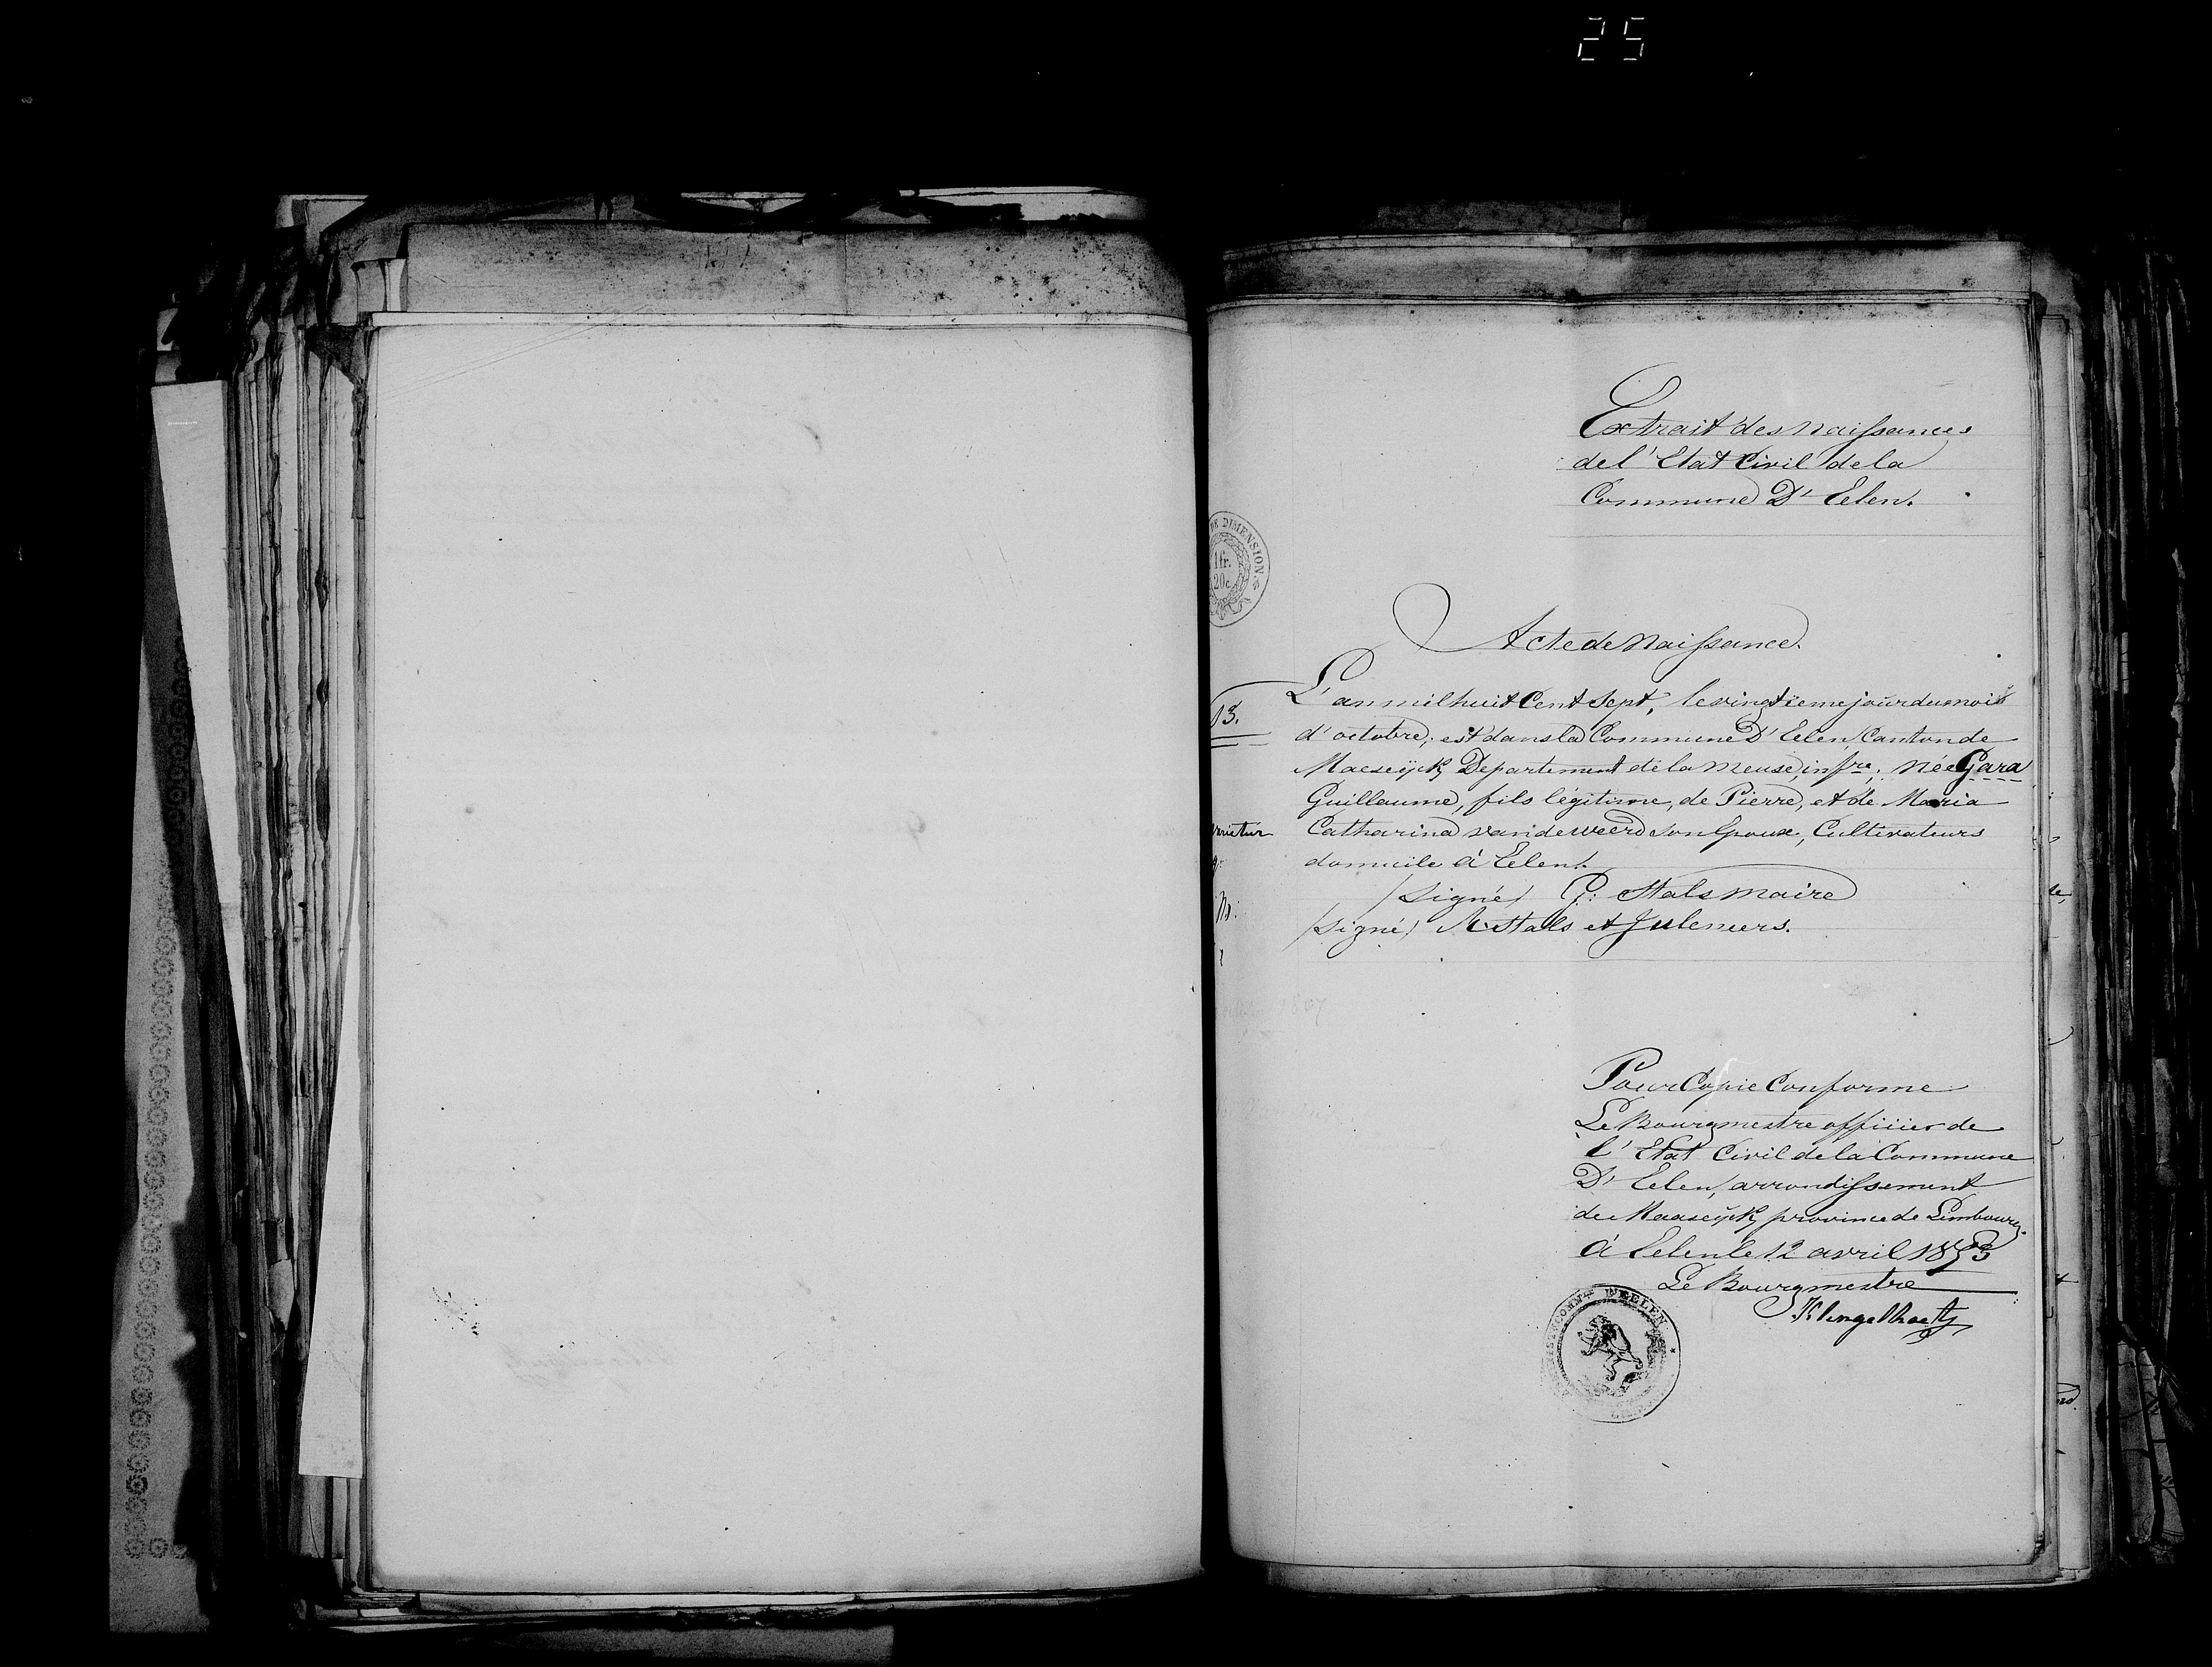 25
Extrait des naissances
de l'Etat Civil de la
Commune D'Eelen.
DE DIMENSION
1fr.
20c
Acte de Naissance.
13.
L'an mil huit Cent Sept, le vingtieme jour du mois
d'octobre, est dans la Commune D'Eelen, Canton de
Maeseÿck Departement de la Meuse infre, née Gara
Guillaume, fils légitime, de Pierre, et de Maria
Catharina van de weerd Son Epoux, Cultivateurs
domicile à Eelen.
/Signé/ G: Stals maire
/Signé/ M: Stals et Julemers.
1807
Pour Copie Conforme
Le Bourgmestre officier de
l'Etat Civil de la Commune
D'Eelen, arrondissement
de Maaseÿck province de Limbourg.
à Eelen le 12 avril 1853
Le Bourgmestre
D'EELEN